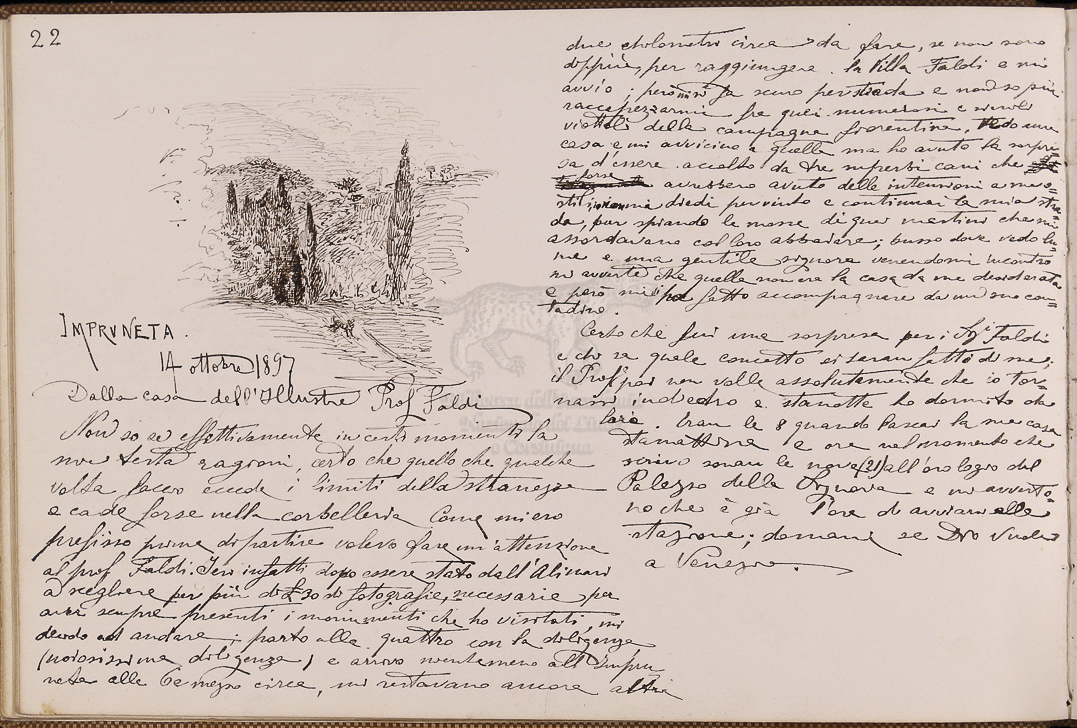 22
IMPRUNETA.
14 ottobre 1897
Dalla casa dell'Illustre Prof Faldi
Non so se effettivamente in certi momenti la
mia testa ragioni, certo che quello che qualche
volta faccio eccede i limiti della stranezza
e cade forse nella corbelleria. Come mi ero
prefisso prima di partire volevo fare un'attenzione
al prof Faldi. Ieri infatti dopo essere stato dall'Alinari
a scegliere per più di £ 30 di fotografie, necessarie per
aver sempre presenti i monumenti che ho visitati, mi
decido ad andare; parto alle quattro con la diligenza
(noiosissima diligenza) e arrivo nientemeno all'Impru
neta alle 6 e mezzo circa, mi restavano ancora altri
due chilometri circa da fare, se non sono
doppii, per raggiungere la Villa Faldi e mi
avvio; però mi si fa scuro per istrada e non so più
raccapezzarmi fra quei numerosi e
viottoli della campagna fiorentina. Vedo una
casa e mi avvicino a quella ma ho avuto la sorpre=
sa d'essere accolto da tre superbi cani che
forse avessero avuto delle intenzioni a me o=
stili, diedi per vinto e continuai la mia stra=
da, pur spiando le mosse di quei mastini che mi
assordavano col loro abbaiare; busso dove vedo lu=
me e una gentile signora venendomi incontro
mi avverte che quella non era la casa da me desiderata
e però mi ha fatto accompagnare da un suo con=
tadino.
Certo che fui una sorpresa per i Sigi Faldi
e chi sa quale concetto si saran fatti di me;
il Prof poi non volle assolutamente che io tor=
nassi indietro e stanotte ho dormito da
loro. Eran le 8 quando lasciai la sua casa
stamattina e ora nel momento che
scrivo sonan le nove (21) all'orologio del
Palazzo della Signoria e mi avverto=
no che è già l'ora di avviarsi alla
stazione; domani se Dio vuole
a Venezia.